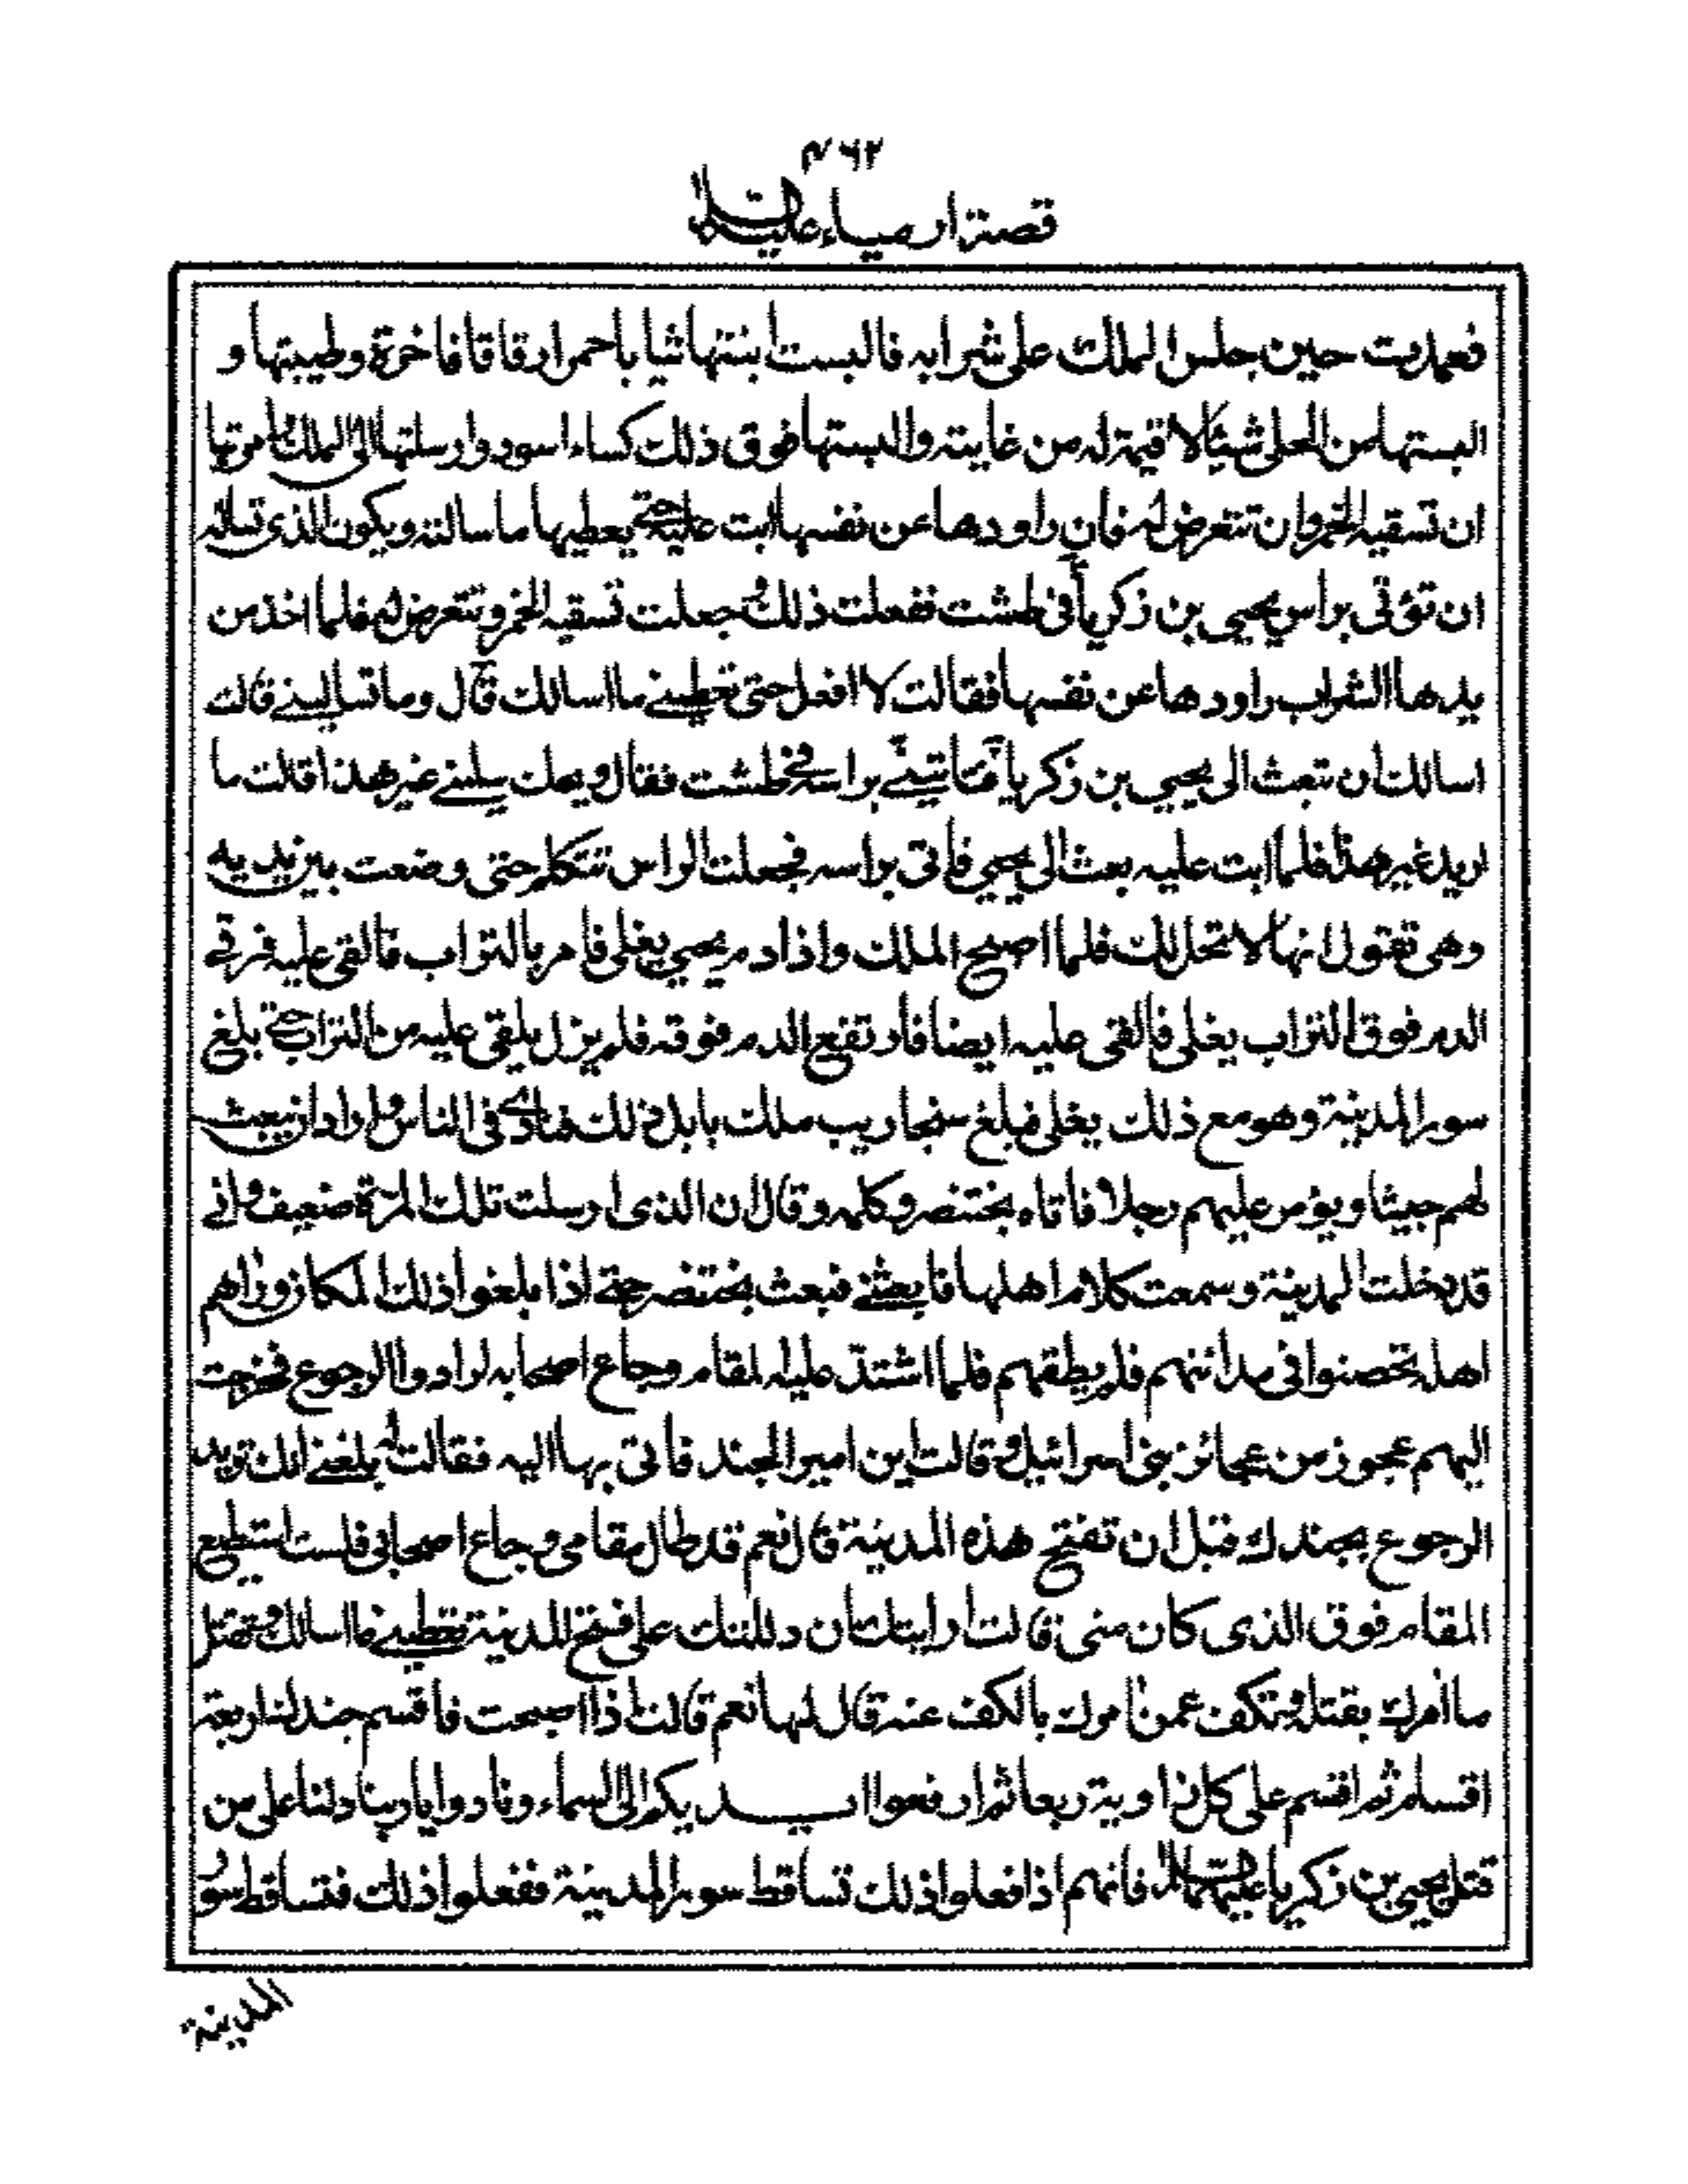 ٤٦٢
قصة ارمياء عليه السلام
فعمدت حين جلس الملك على شرابه فالبست ابنتها ثيابا حمرا رقاقا فاخرة وطيبتها و
البستها من الحلى شيئا لا قيمة له من غايته والبستها فوق ذلك كساء اسود وارسلتها الى الملك وامرتها
ان تسقيه الخمر وان تتعرض له فان راودها عن نفسها ابت عليه حتى يعطيها ما سالته ويكون الذى تساله
ان تؤتى براس يحيى بن زكريا فى طشت ففعلت ذلك وجعلت تسقيه الخمر وتتعرض له فلما اخذ من
يدها الشراب راودها عن نفسها فقالت لا افعل حتى تعطينے ما اسالك قال وما تساليننے قالت
اسالك ان تبعث الى يحيى بن زكريا فتاتينے براسه فى طشت فقال ويحك سلينے غير هذا قالت ما
اريد غير هذا فلما ابت عليه بعث الى يحيى فاتى براسه فجعلت الراس تتكلم حتى وضعت بين يديه
وهى تقول انها لا تحل لك فلما اصبح الملك واذا دم يحيى يغلى فامر بالتراب فالقى عليه فرقى
الدم فوق التراب يغلى فالقى عليه ايضا فارتفع الدم فوقه فلم يزل يلقى عليه من التراب حتى بلغ
سور المدينة وهو مع ذلك يغلى فبلغ سنجاريب ملك بابل ذلك فنادى فى الناس واراد ان يبعث
لهم جيشا ويؤمر عليهم رجلا فاتاه بختنصر وكلمه وقال ان الذى ارسلت تلك المرة ضعيف وانے
قد دخلت المدينة وسمعت كلام اهلها فابعثنے فبعث بختنصر حتى اذا بلغوا ذلك المكان وراهم
اهله تحصنوا فى مدائنهم فلم يطقهم فلما اشتد عليه المقام وجاع اصحابه ارادوا الرجوع فخرجت
اليهم عجوز من عجائز بنى اسرائيل وقالت اين امير الجند فاتى بها اليه فقالت له بلغنے انك تريد
الرجوع بجندك قبل ان تفتح هذه المدينة قال نعم قد طال مقامى وجاع اصحابى فلست استطيع
المقام فوق الذى كان منى قالت ارايتك ان دللتك على فتح المدينة تعطينے ما اسالك وتقتل
ما امرك بقتله وتكف عمن امرك بالكف عنه قال لها نعم قالت اذا اصبحت فاقسم جندك اربعة
اقسام ثم اقسم على كل زاوية ربعا ثم ارفعوا ايديكم الى السماء ونادوا يا ربنا دلنا على من
قتل يحيى بن زكريا عليهما السلام فانهم اذا فعلوا ذلك تساقط سور المدينة ففعلوا ذلك فتساقط سور
المدينة